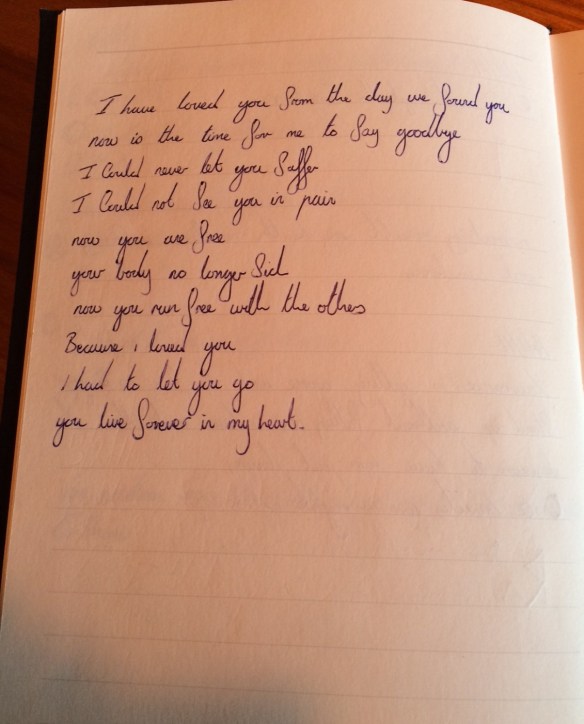 I have loved you from the day we found you
now is the time for me to Say goodbye
I Could never let you Suffer
I Could not See you in pain
now you are free
your body no longer Sick
now you run free with the others
Because i loved you
i had to let you go
you live forever in my heart.